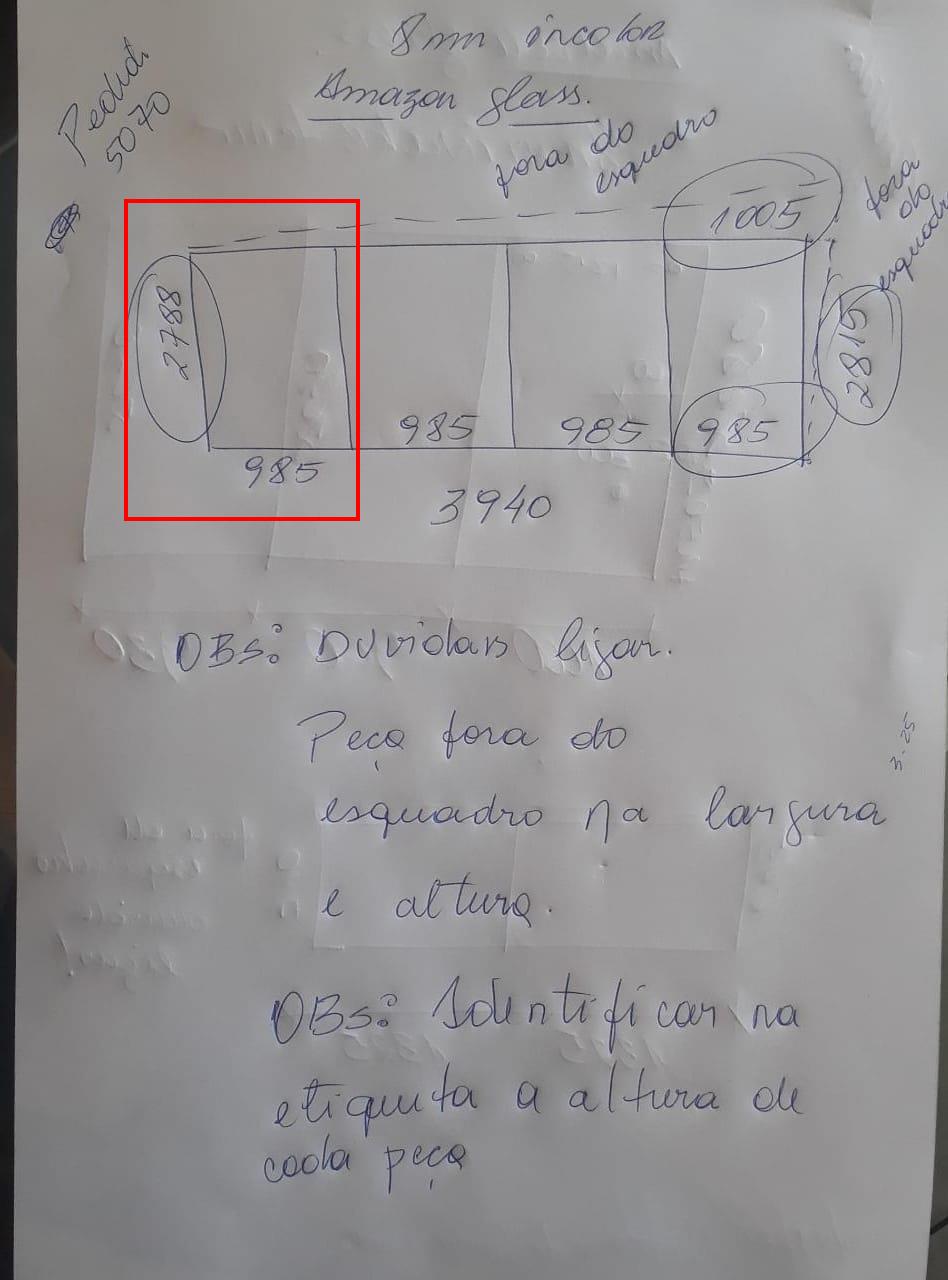 8mm incolor
Amazon glass.
Pedido
5070
fora do
esquadro
1005
fora
do
esquadro
2788
2815
985
985
985
985
3940
OBS: Duvidas ligar.
Peça fora do
esquadro na largura
e altura.
3.25
OBS: Identificar na
etiqueta a altura de
cada peça